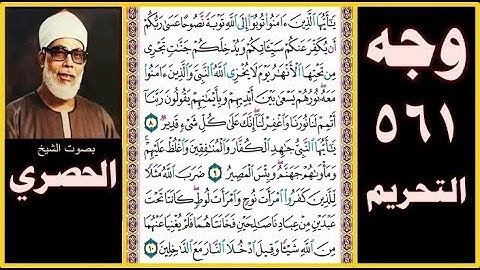 وجه
٥٦١
التحريم
بصوت الشيخ
الحصري
يَٰٓأَيُّهَا ٱلَّذِينَ ءَامَنُوا۟ تُوبُوٓا۟ إِلَى ٱللَّهِ تَوْبَةً نَّصُوحًا عَسَىٰ رَبُّكُمْ
أَن يُكَفِّرَ عَنكُمْ سَيِّـَٔاتِكُمْ وَيُدْخِلَكُمْ جَنَّٰتٍ تَجْرِى
مِن تَحْتِهَا ٱلْأَنْهَٰرُ يَوْمَ لَا يُخْزِى ٱللَّهُ ٱلنَّبِىَّ وَٱلَّذِينَ ءَامَنُوا۟
مَعَهُۥ ۖ نُورُهُمْ يَسْعَىٰ بَيْنَ أَيْدِيهِمْ وَبِأَيْمَٰنِهِمْ يَقُولُونَ رَبَّنَآ
أَتْمِمْ لَنَا نُورَنَا وَٱغْفِرْ لَنَآ ۖ إِنَّكَ عَلَىٰ كُلِّ شَىْءٍ قَدِيرٌ ٨
يَٰٓأَيُّهَا ٱلنَّبِىُّ جَٰهِدِ ٱلْكُفَّارَ وَٱلْمُنَٰفِقِينَ وَٱغْلُظْ عَلَيْهِمْ ۚ
وَمَأْوَىٰهُمْ جَهَنَّمُ ۖ وَبِئْسَ ٱلْمَصِيرُ ٩ ضَرَبَ ٱللَّهُ مَثَلًا
لِّلَّذِينَ كَفَرُوا۟ ٱمْرَأَتَ نُوحٍ وَٱمْرَأَتَ لُوطٍ ۖ كَانَتَا تَحْتَ
عَبْدَيْنِ مِنْ عِبَادِنَا صَٰلِحَيْنِ فَخَانَتَاهُمَا فَلَمْ يُغْنِيَا عَنْهُمَا
مِنَ ٱللَّهِ شَيْـًٔا وَقِيلَ ٱدْخُلَا ٱلنَّارَ مَعَ ٱلدَّٰخِلِينَ ١٠